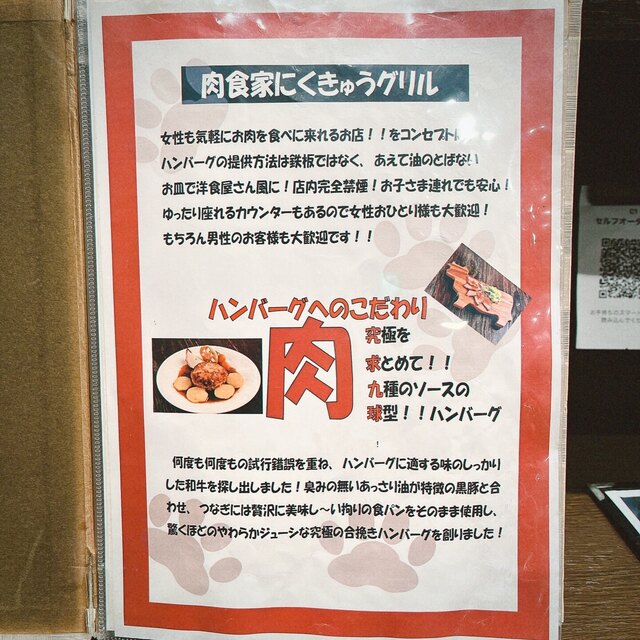 肉食家にくきゅうグリル
女性も気軽にお肉を食べに来れるお店！！をコンセプトに
ハンバーグの提供方法は鉄板ではなく、あえて油のとばない
お皿で洋食屋さん風に！店内完全禁煙！お子さま連れでも安心！
ゆったり座れるカウンターもあるので女性おひとり様も大歓迎！
もちろん男性のお客様も大歓迎です！！
ハンバーグへのこだわり
肉
究極を
求とめて！！
九種のソースの
球型！！ハンバーグ
！
何度も何度もの試行錯誤を重ね、ハンバーグに適する味のしっかり
した和牛を探し出しました！臭みの無いあっさり油が特徴の黒豚と合
わせ、つなぎには贅沢に美味し～い拘りの食パンをそのまま使用し、
驚くほどのやわらかジューシな究極の合挽きハンバーグを創りました！
セルフオーダ
お手持ちのスマー
読み込んでくだ